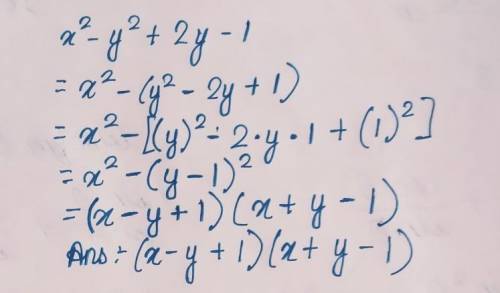 x² - y² + 2y - 1
= x² - (y² - 2y + 1)
= x² - [(y)² - 2·y·1 + (1)²]
= x² - (y - 1)²
= (x - y + 1) (x + y - 1)
Ans:- (x - y + 1) (x + y - 1)